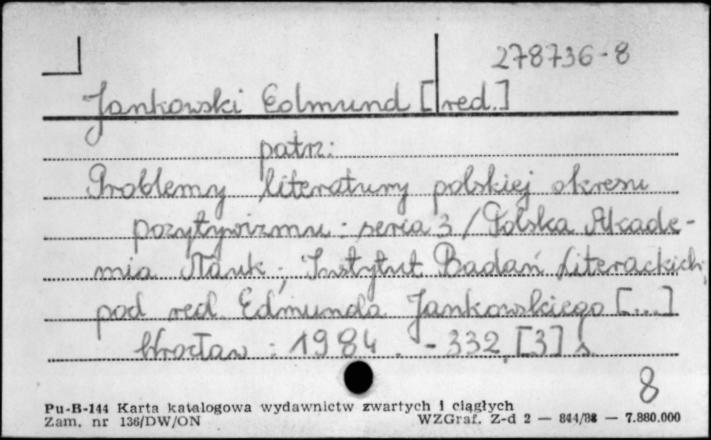 278736-8
Jankowski Edmund [red.]
patrz:
Problemy literatury polskiej okresu
pozytywizmu : seria 3 / Polska Akade-
mia Nauk ; Instytut Badań Literackich;
pod red. Edmunda Jankowskiego [...]
Wrocław : 1984. - 332, [3] s.
8
Pu-B-144 Karta katalogowa wydawnictw zwartych i ciągłych
Zam. nr 136/DW/ON WZGraf. Z-d 2 — 844/84 — 7.880.000